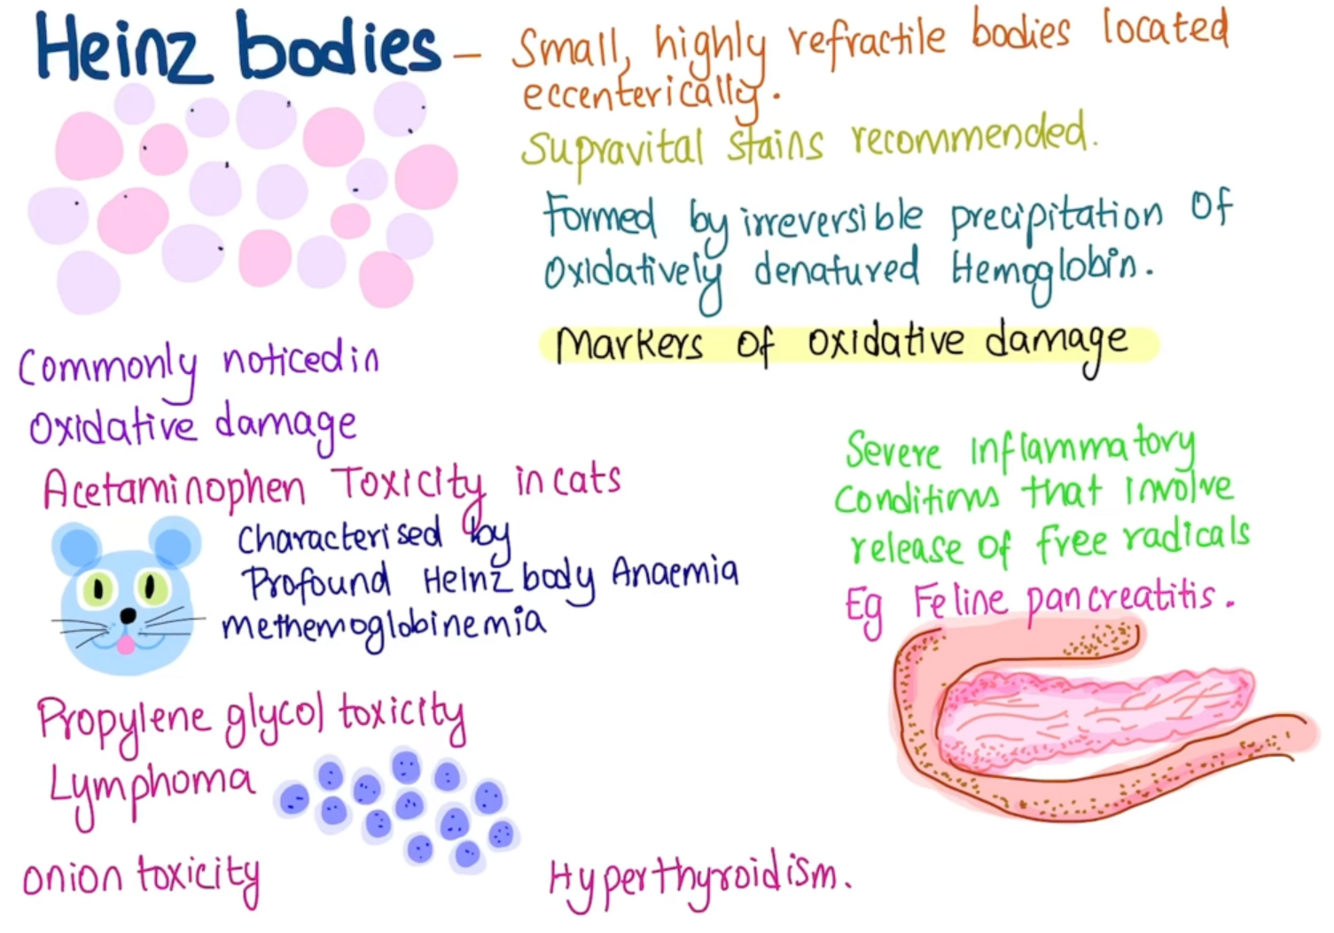 Heinz bodies - Small, highly refractile bodies located
eccenterically.
Supravital stains recommended.
Formed by irreversible precipitation of
Oxidatively denatured Hemoglobin.
Markers of oxidative damage
Commonly noticed in
Oxidative damage
Acetaminophen Toxicity in cats
Characterised by
Profound Heinz body Anaemia
methemoglobinemia
Propylene glycol toxicity
Lymphoma
onion toxicity
Hyperthyroidism.
Severe Inflammatory
Conditions that involve
release of free radicals
Eg Feline pancreatitis.